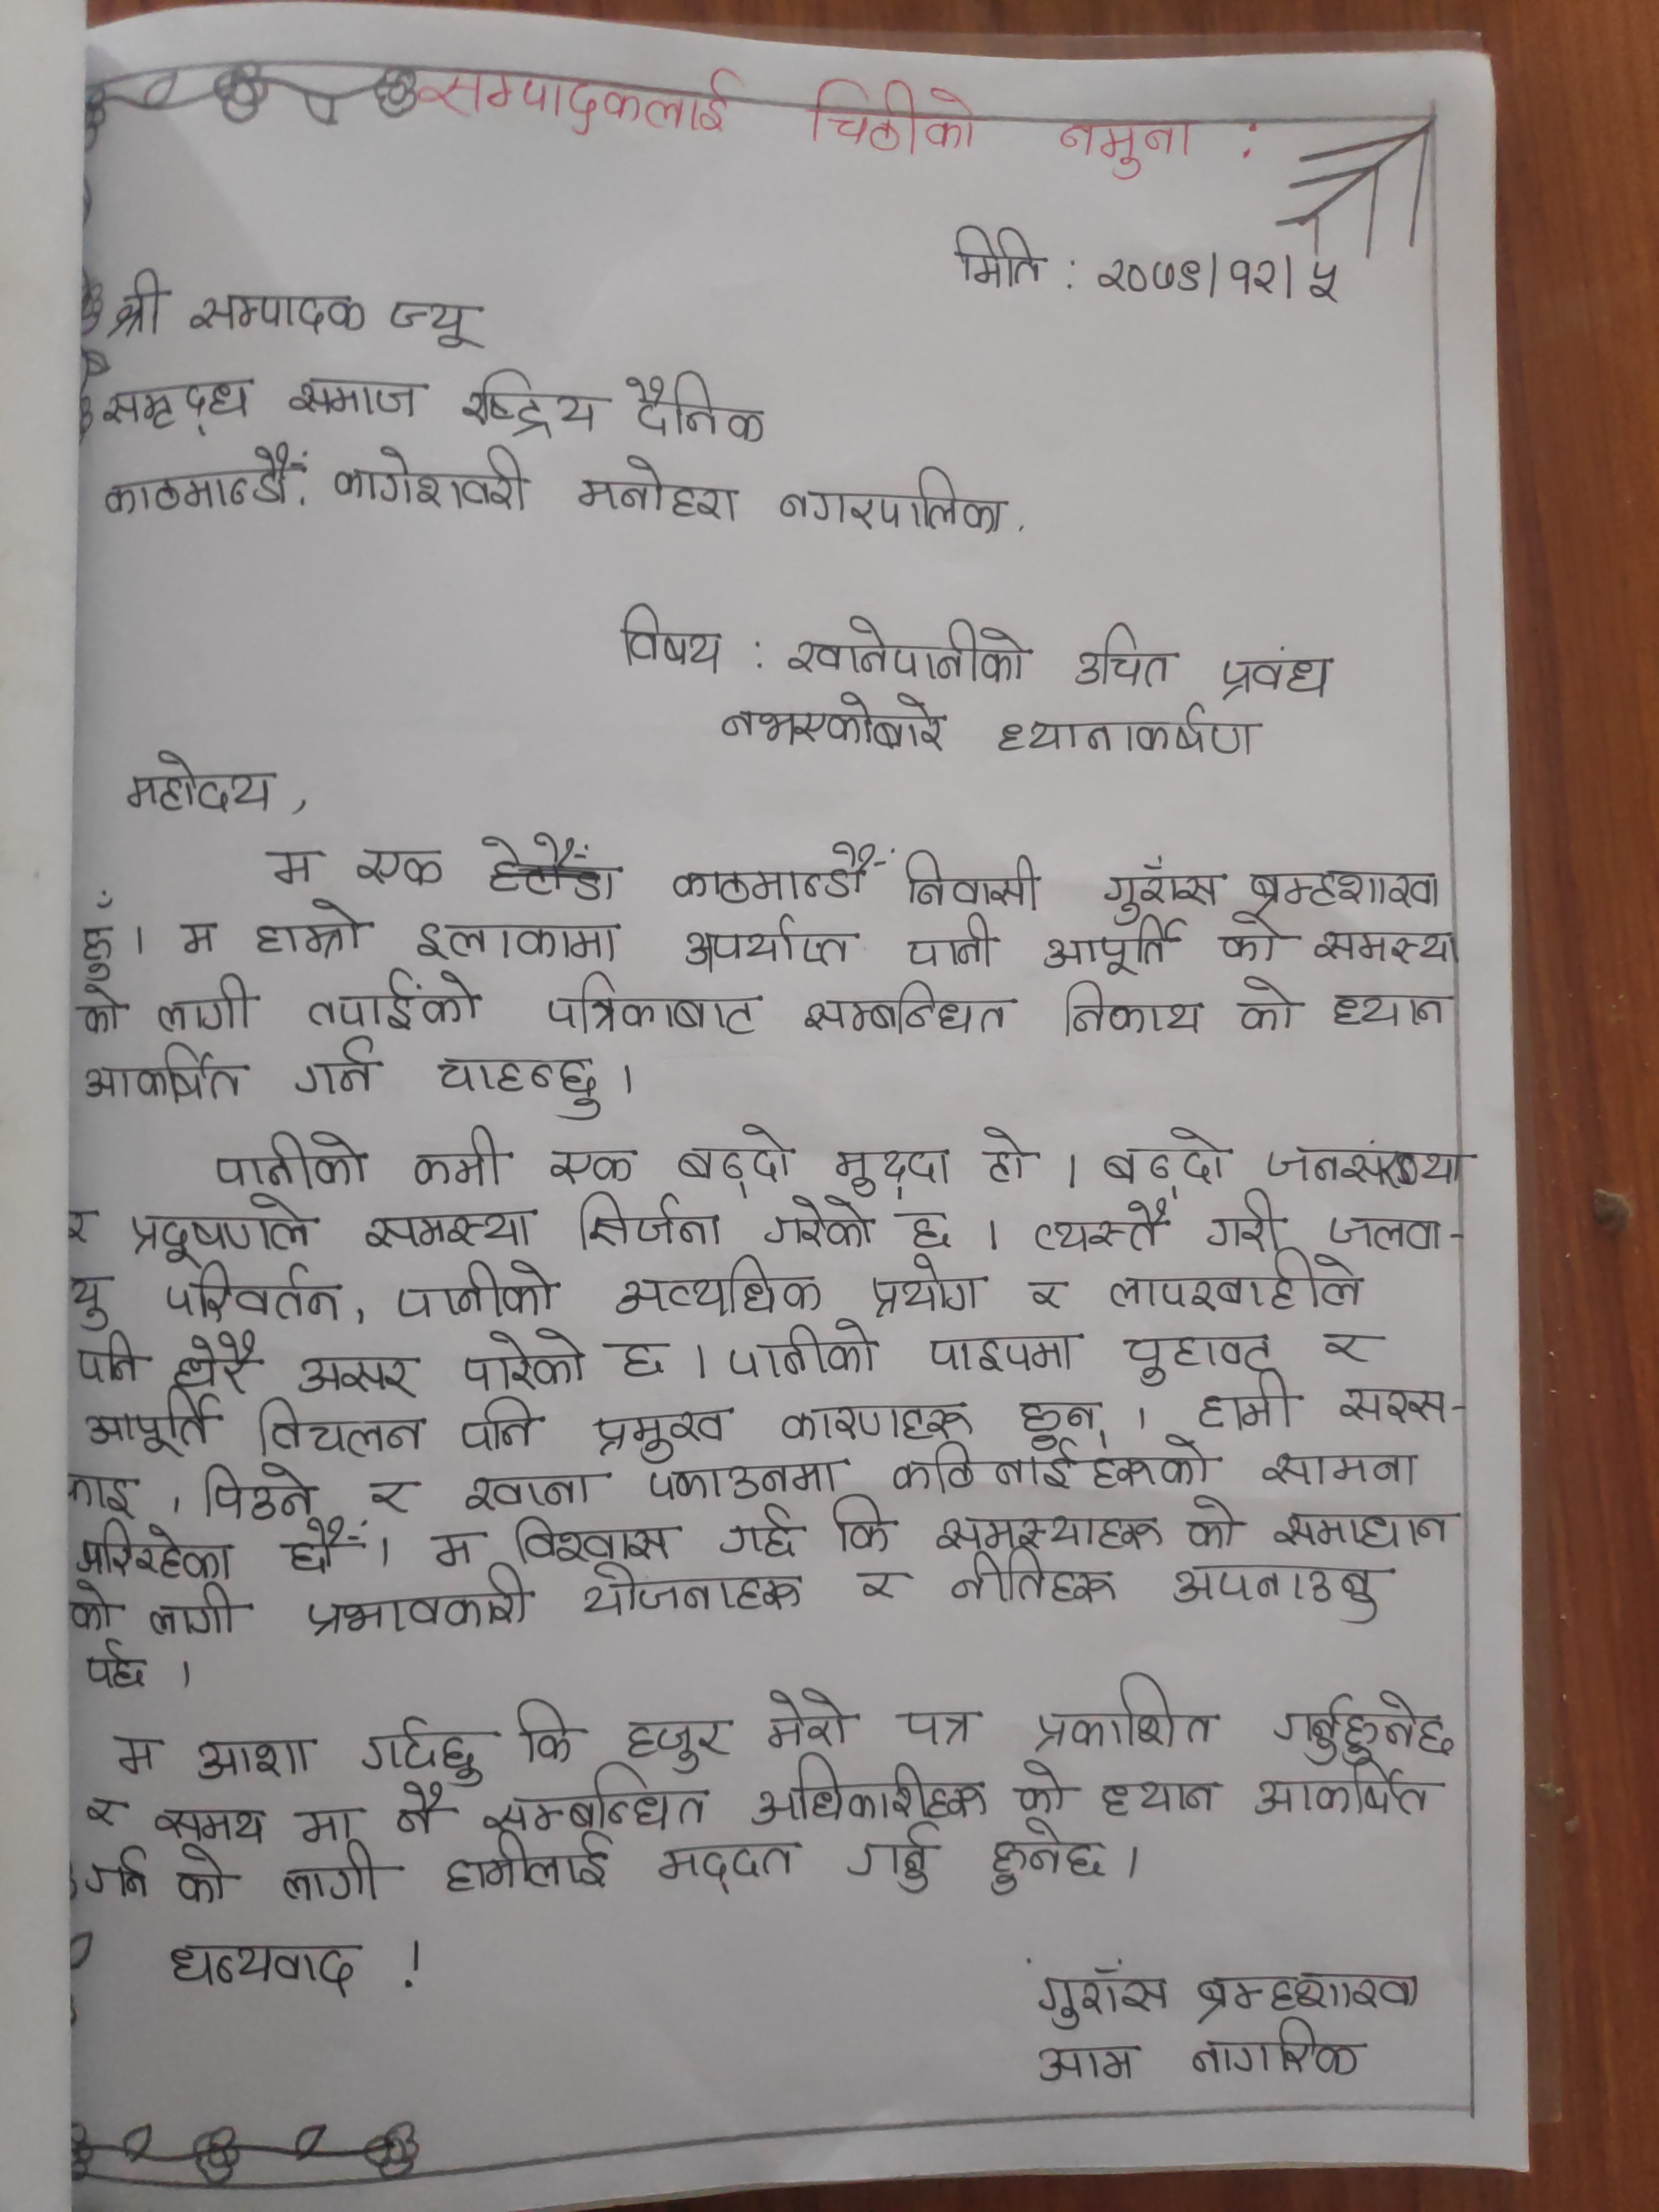 सम्पादकलाई चिठीको नमुना :
मिति : २०७९|१२|५
श्री सम्पादक ज्यू
समृद्ध समाज राष्ट्रिय दैनिक
काठमान्डौं, कागेश्वरी मनोहरा नगरपालिका.
विषय : खानेपानीको उचित प्रवंध
नभएकोबारे ध्यानाकर्षण
महोदय,
म एक हेटौंडा काठमान्डौं निवासी गुराँस ब्रम्हशाखा
हुँ । म हाम्रो इलाकामा अपर्याप्त पानी आपूर्ति को समस्या
को लागी तपाईंको पत्रिकाबाट सम्बन्धित निकाय को ध्यान
आकर्षित गर्न चाहन्छु ।
पानीको कमी एक बढ्दो मुद्दा हो । बढ्दो जनसंख्या
र प्रदूषणले समस्या सिर्जना गरेको छ । त्यस्तै गरी जलवा-
यु परिवर्तन, पानीको अत्यधिक प्रयोग र लापरबाहीले
पनि धेरै असर पारेको छ । पानीको पाइपमा चुहावट र
आपूर्ति विचलन पनि प्रमुख कारणहरू हुन् । हामी सरस-
काइ, पिउने र खाना पकाउनमा कठिनाईहरूको सामना
गरिरहेका छौं । म विश्वास गर्छु कि समस्याहरू को समाधान
को लागी प्रभावकारी योजनाहरू र नीतिहरू अपनाउनु
पर्छ ।
म आशा गर्दछु कि हजुर मेरो पत्र प्रकाशित गर्नुहुनेछ
र समय मा नै सम्बन्धित अधिकारीहरू को ध्यान आकर्षित
गर्न को लागी हामीलाई मद्दत गर्नु हुनेछ ।
धन्यवाद !
गुराँस ब्रम्हशाखा
आम नागरिक